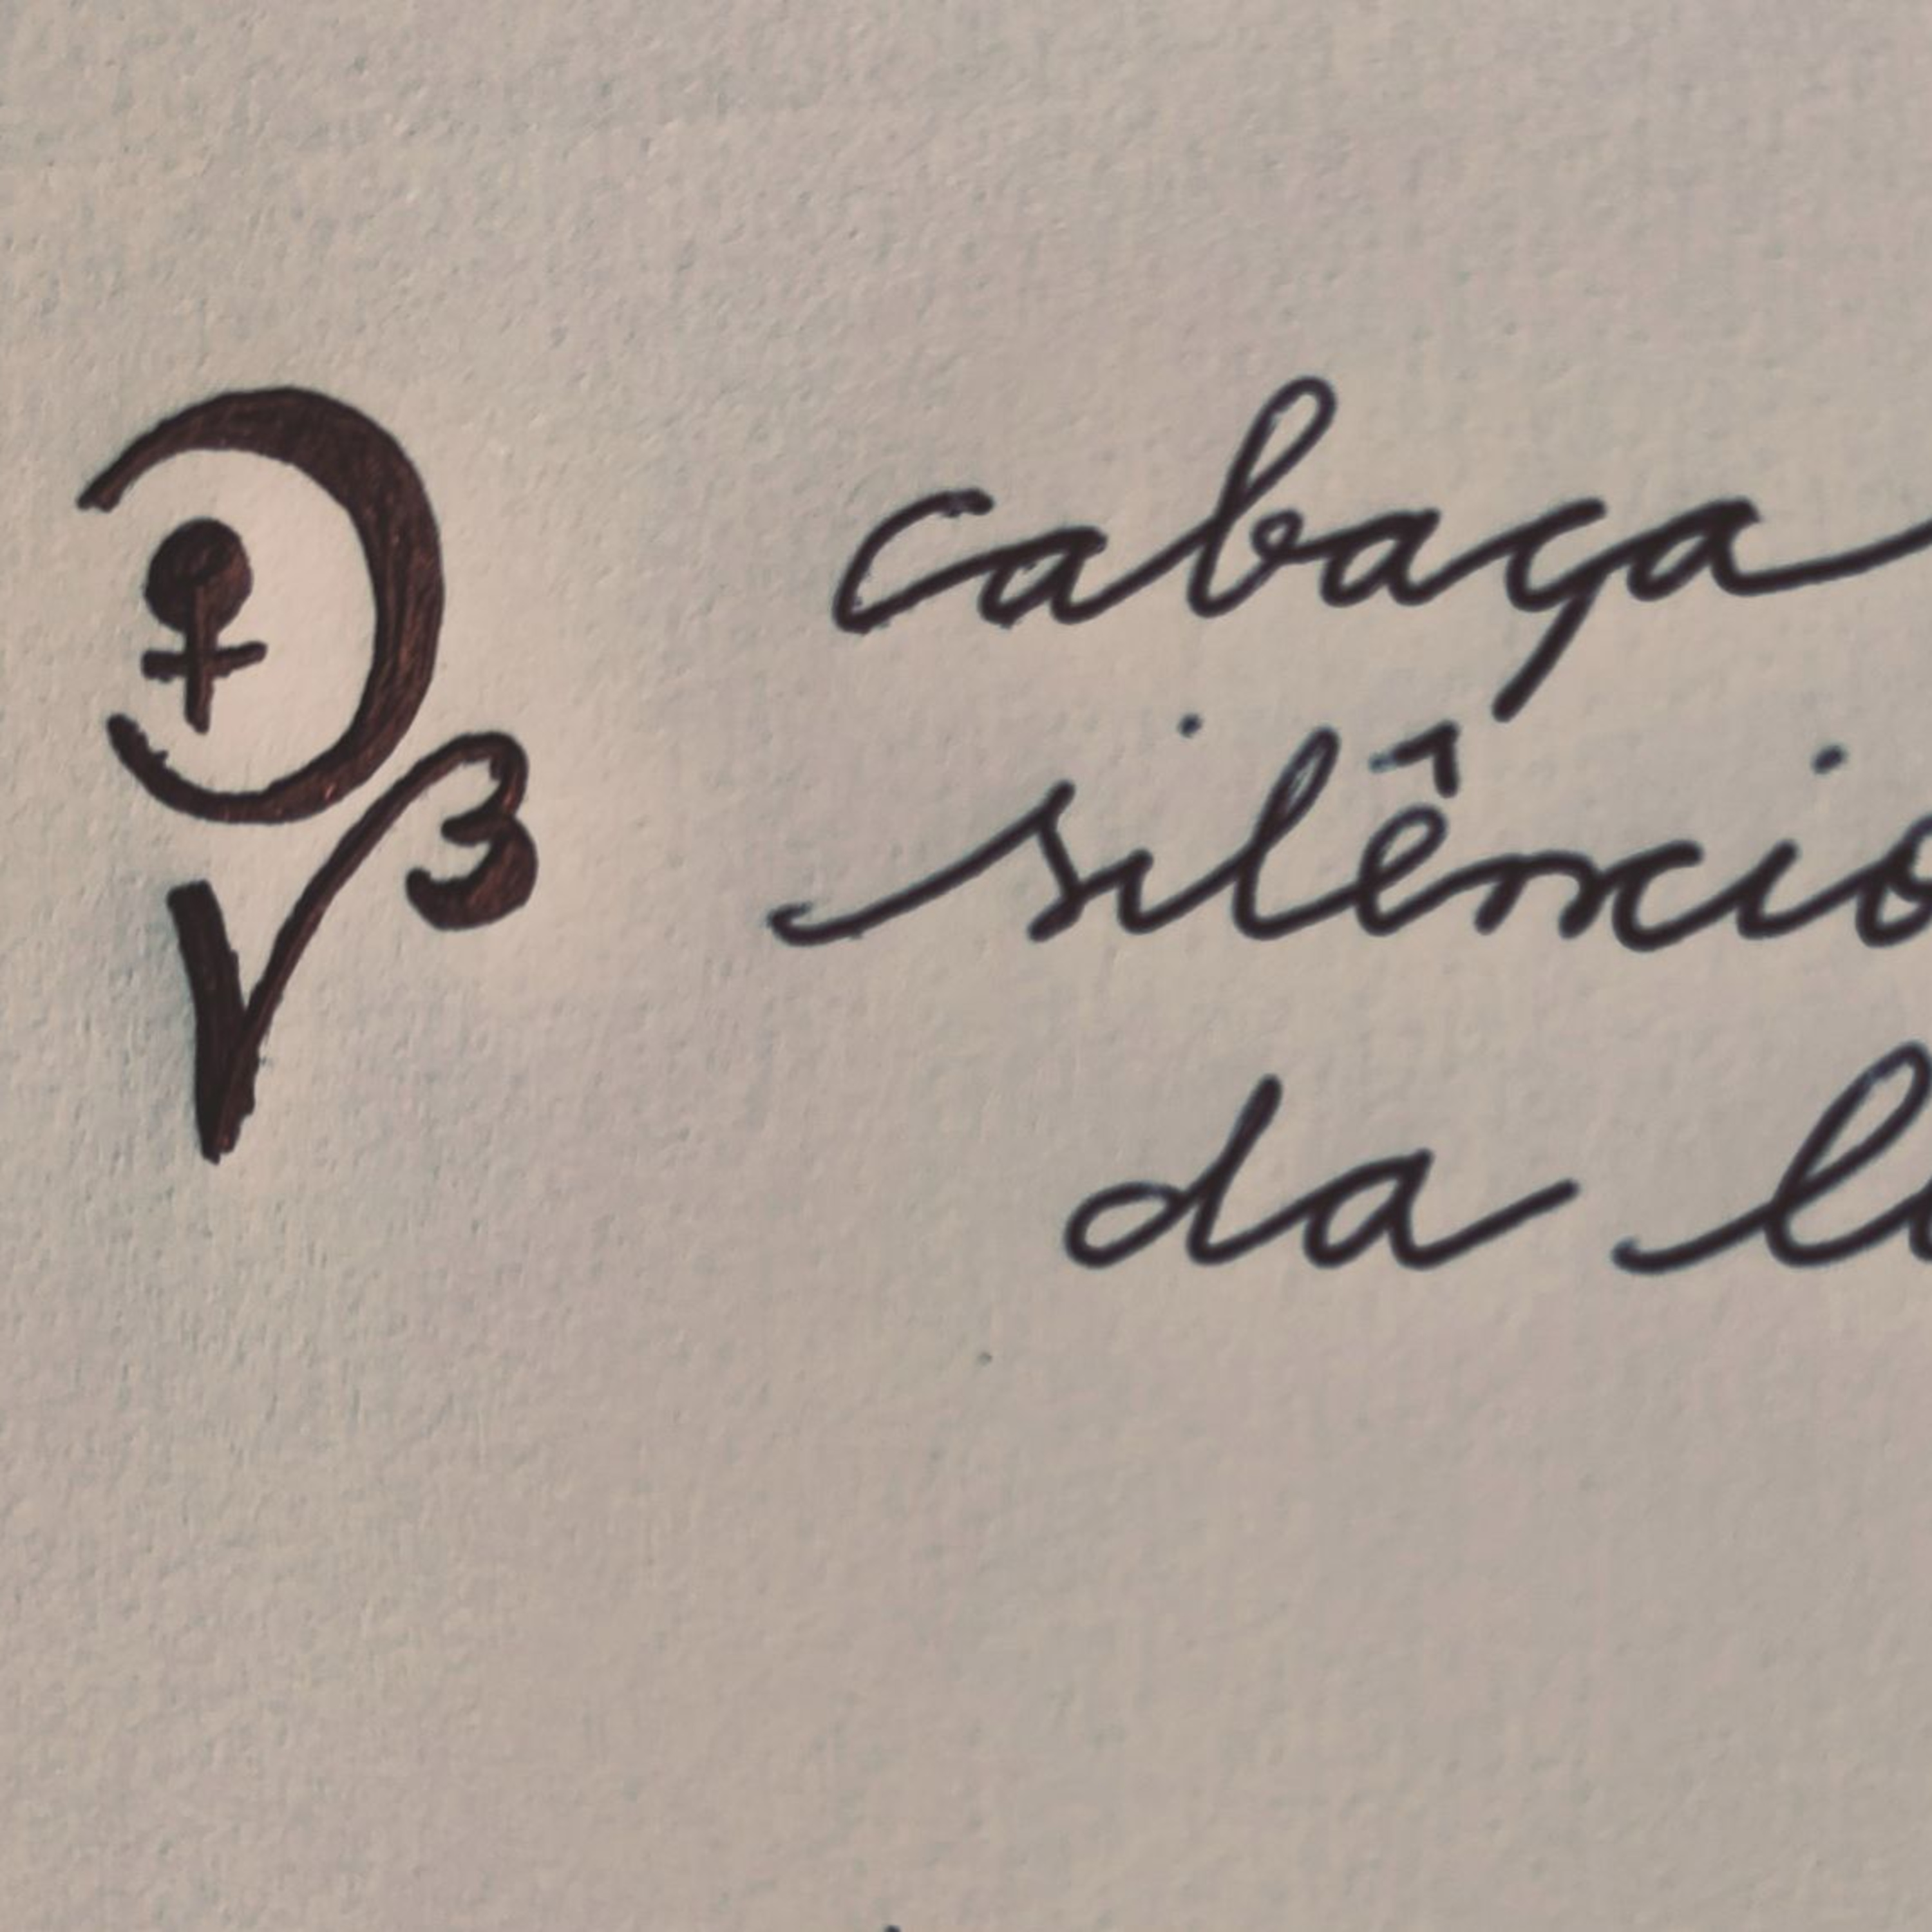 cabaça
silêncio
da